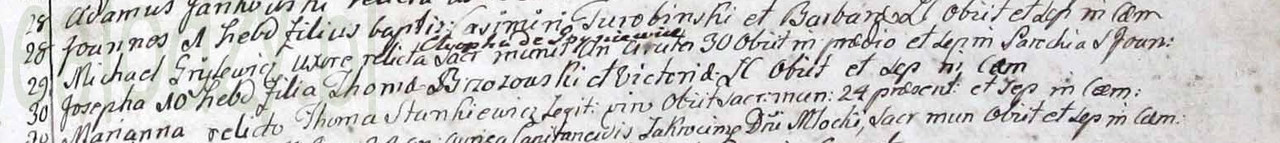 28 Adamus Jankowski relicta
28 Joannes 1 hebd filius baptis: Casimiri Turobinski et Barbara LC Obiit et sep in Cœm
29 Michael Grylewicz uxore relicta sacr munit An circiter 30 Obiit in prædio et sep in Parochia S Joan:
30 Josepha 10 hebd filia Thoma Brzozowski et Victoria LC Obiit et sep in Cœm
30 Marianna relicto Thoma Stankiewicz Legit: viro Obiit sacr: mun: 24 præsent: et sep in Cœm:
Capitaneidis Zakrocim Dñi Mlocki, sacr mun Obiit et sep in Cœm: